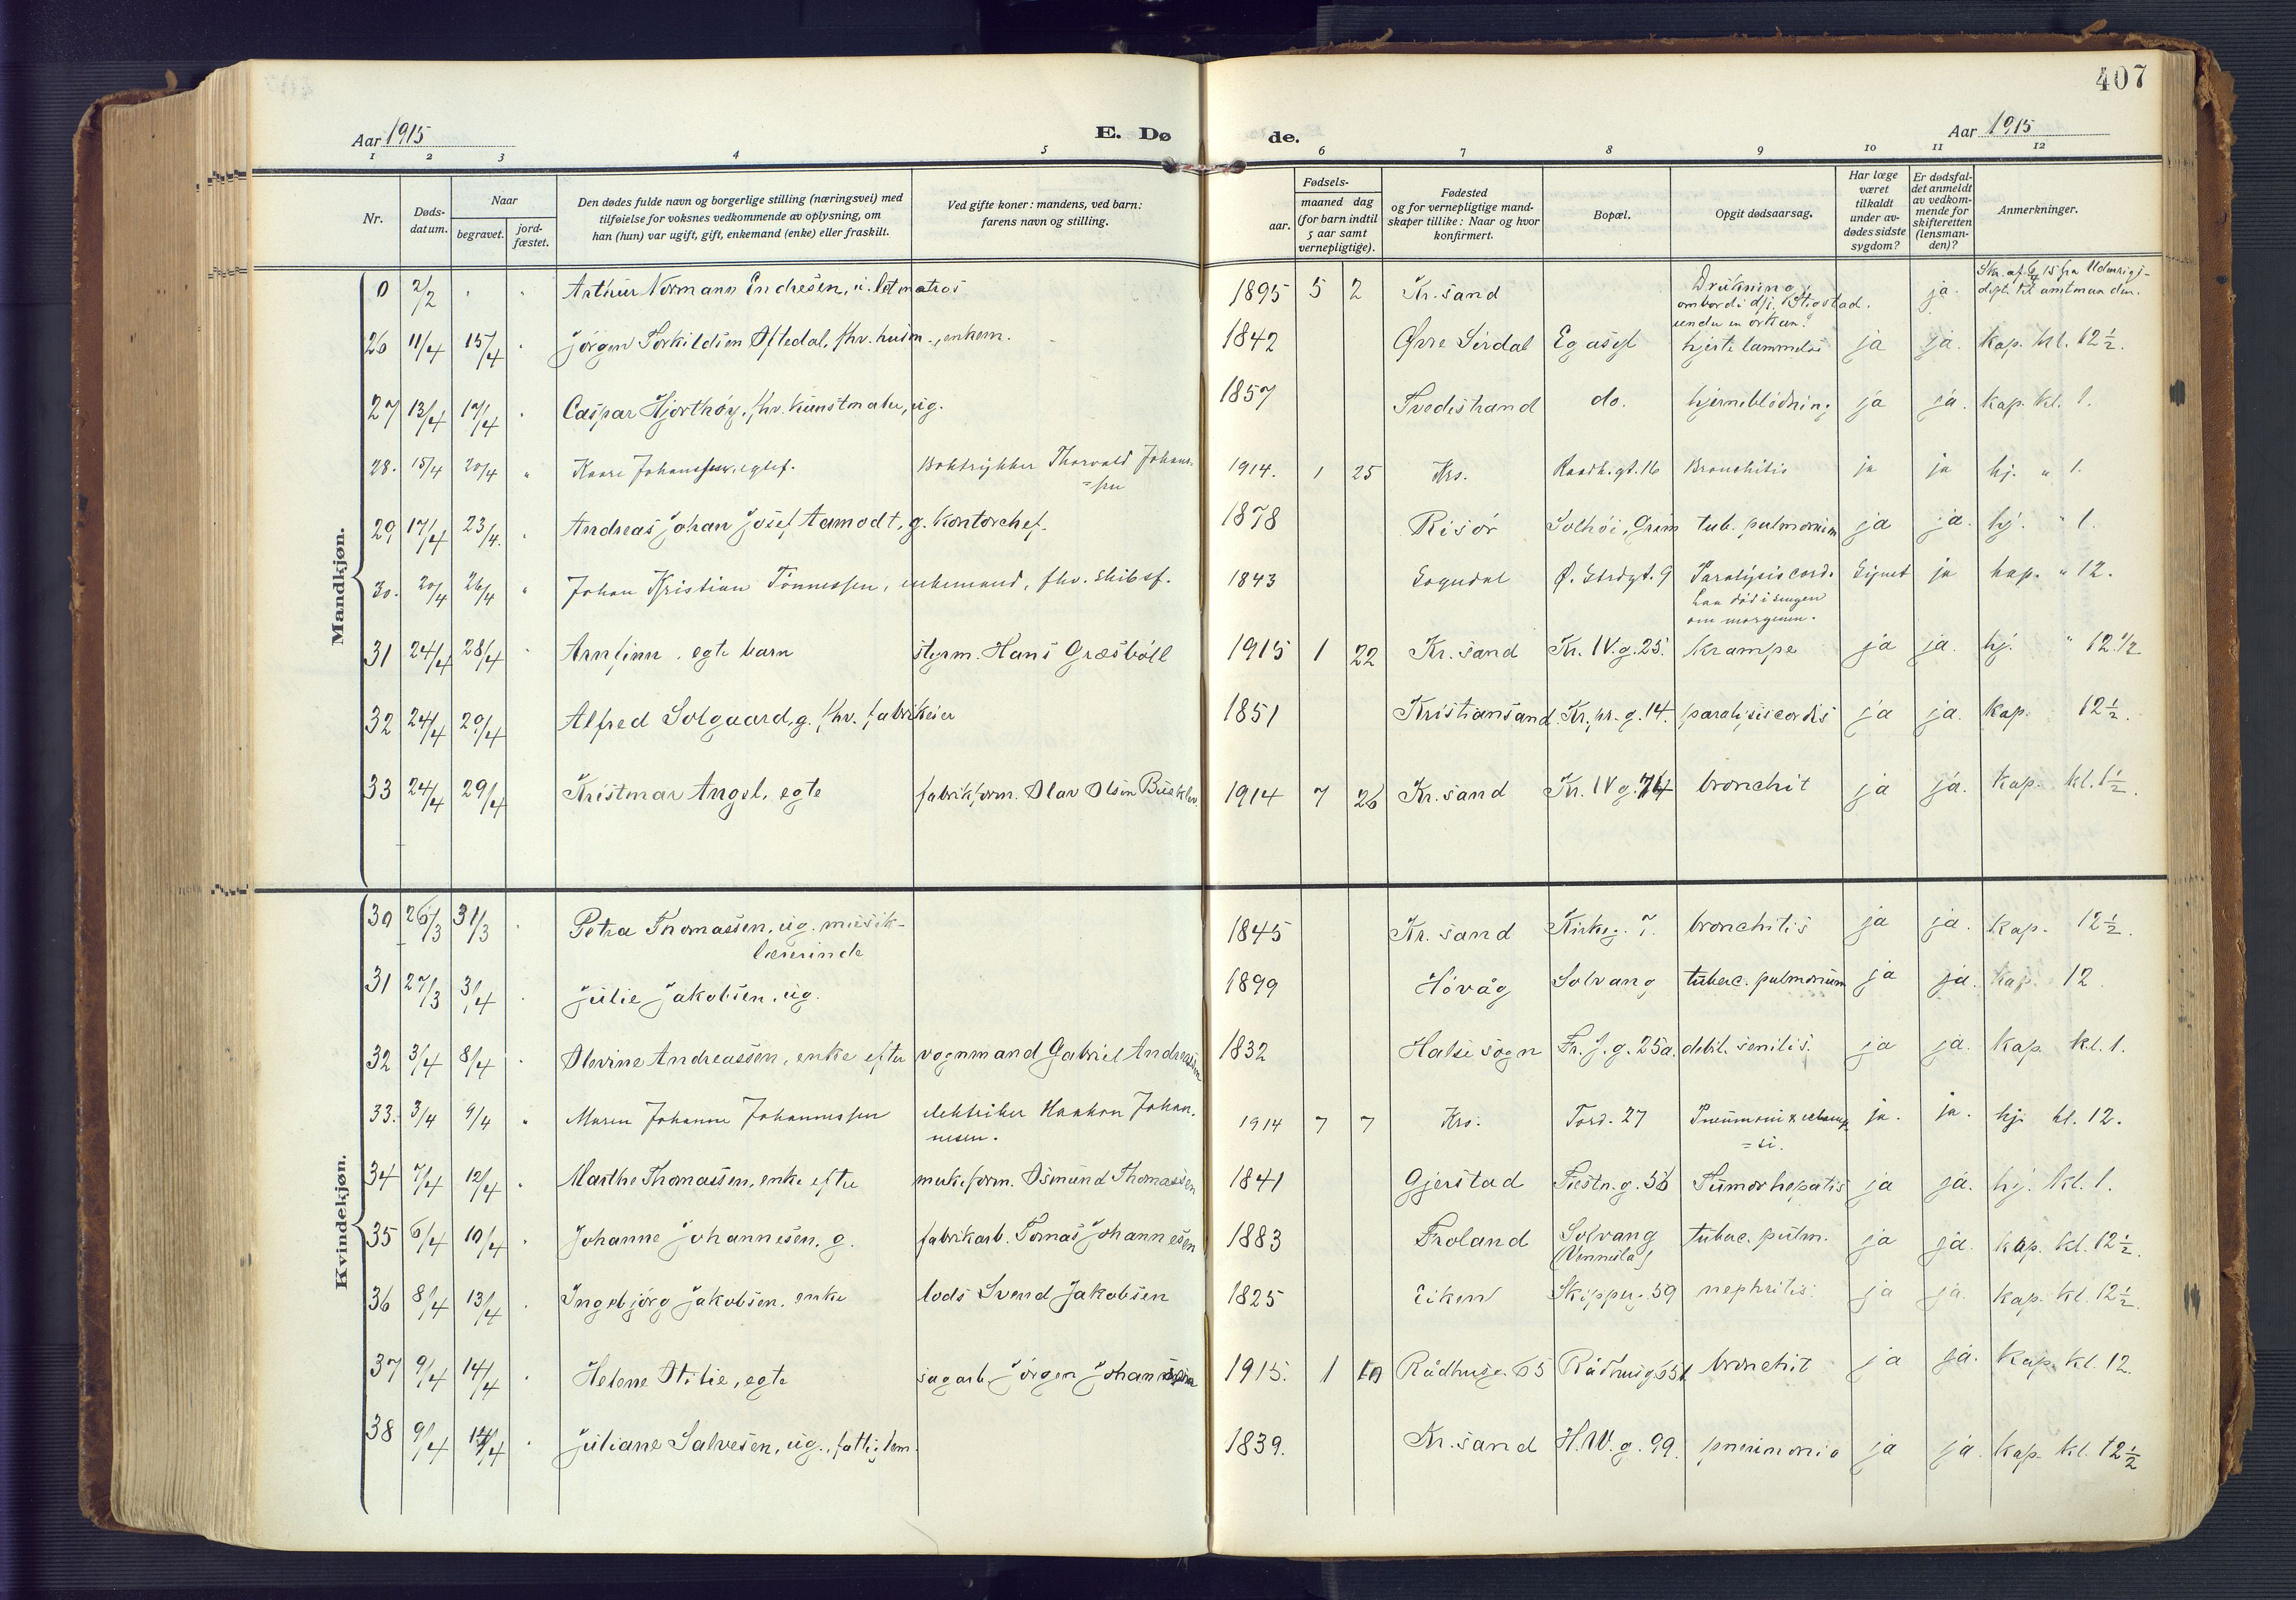 407
Aar 1915 E. Dø de. Aar 1915
1 2 3 4 5 6 7 8 9 10 11 12
Nr.
Døds-
datum.
Naar
begravet.
jord-
fæstet.
Den dødes fulde navn og borgerlige stilling (næringsvei) med
tilføielse for voksnes vedkommende av oplysning, om
han (hun) var ugift, gift, enkemand (enke) eller fraskilt.
Ved gifte koner: mandens, ved barn:
farens navn og stilling.
Fødsels-
aar.
maaned dag
(for barn indtil
5 aar samt
vernepligtige).
Fødested
og for vernepligtige mand-
skaper tillike: Naar og hvor
konfirmert.
Bopæl.
Opgit dødsaarsag.
Har læge
været
tilkaldt
under av-
dødes sidste
sygdom?
Er dødsfal-
det anmeldt
av vedkom-
mende for
skifteretten
(lensman-
den)?
Anmerkninger.
Mandkjøn.
0 2/2 " " Arthur Normann Endresen, u. letmatros 1895 5 2 Kr.sand Drukning, ja. Skr. af 6/4 15 fra
ombord i d/s. til amtmanden.
under en orkan.
26 11/4 15/4 " Jörgen Torkildsen Oftedal, fhv. husm., enkem. 1842 Øvre Sirdal Egasyl hjertelammelse ja ja. kap. kl. 12½.
27 13/4 17/4 " Caspar Hjorthöy, fhv. kunstmaler, ug. 1857 Tvedestrand do. hjerneblödning ja ja. kap. kl. 1.
28. 15/4 20/4 " Kaare Johanssen, egtef. Boktrykker Thorvald Johans- 1914. 1 25 Krs. Raadh.gt.16 Bronchitis ja ja hj. " 1.
=sen
29 17/4 23/4. " Andreas Johan Josef Aamodt, g. kontorchef. 1878 Risör Solhöi, Grim tub. pulmonum ja ja. hj. " 1.
30. 20/4 26/4 " Johan Kristian Tönnessen, enkemand, fhv. skibsf. 1843 Sogndal Ø. Strdgt. 9 Paralysis cord. ja kap. " 12.
Laa död i sengen
om morgenen.
31 24/4 28/4 " Arnfinn, egte barn styrm. Hans Græsböll 1915 1 22 Kr.sand Kr. IV.g.25. krampe ja ja. hj. " 12.½
32 24/4 20/4 Alfred Solgaard, g. fhv. fabrikeier 1851 Kristiansand. Kr.pr.g.14. paralysis cordis ja ja. kap. 12½.
33 24/4 29/4 Kristmar Angel, egte fabrikform. Olav Olsen 1914 7 26 Kr.sand Kr. IV g. 74 bronchit ja ja. kap. kl. 1½.
Kvindekjøn.
30 26/3 31/3 " Petra Thomassen, ug. musik- 1845 Kr.sand Kirkeg. 7. bronchitis ja ja. kap. 12½.
lærerinde
31 27/3 3/4 " Julie Jakobsen, ug. 1899 Hövåg Solvang tuberc. pulmonum ja ja. kap. 12.
32 3/4 8/4 " Olevine Andreassen, enke efter vognmand Gabriel Andreassen 1832 Halse sogn Fr. J. g. 25a. debil. senilis. ja ja. kap. kl. 1.
33. 3/4 9/4 " Maren Johanne Johannessen elektriker Haakon Johan- 1914 7 7 Krs. Tord. 27 Pneumoni & eclamp ja. ja. hj. kl. 12.
nesen. =si.
34 7/4 12/4 " Marthe Thomassen, enke efter Osmund Thomassen 1841 Gjerstad Festn. g. 56 Tumor hepatis ja ja. hj. kl. 1.
35 6/4 10/4 " Johanne Johannesen, g. fabrikarb. Tomas Johannesen 1883 Froland Solvang tuberc. pulm. ja ja. kap. kl. 12½.
(Vennesla)
36 8/4 13/4 " Ingebjörg Jakobsen, enke lods Svend Jakobsen 1825 Eiken Skipperg. 59 nephritis. ja ja. kap. kl. 12½.
37 9/4 14/4 " Helene Otilie, egte sagarb. Jörgen Johannessen 1915. 1 10 Rådhusg. 65 Rådhusg. 65 bronchit ja ja. kap. kl. 12.
38 9/4 14/4 " Juliane Salvesen, ug., fattiglem. 1839. Kr.sand H.W.g. 99. pneumonia ja ja. kap. kl. 12½